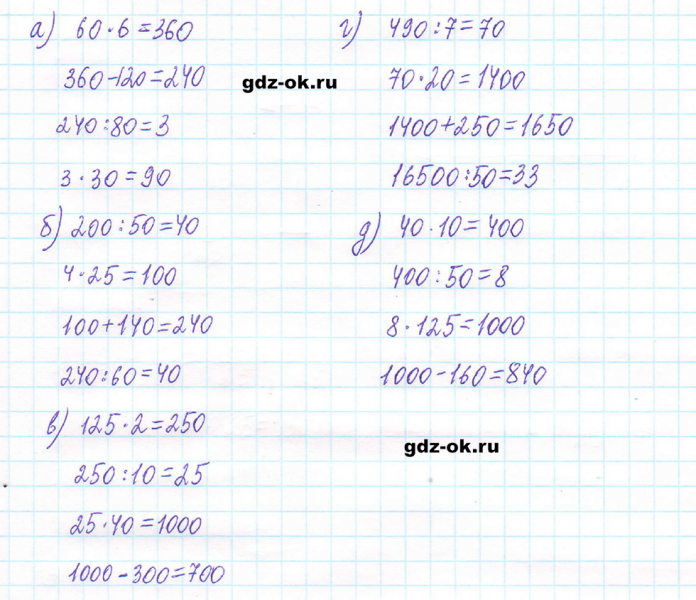 а) 60·6=360
360-120=240
240:80=3
3·30=90
б) 200:50=40
4·25=100
100+140=240
240:60=40
в) 125·2=250
250:10=25
25·40=1000
1000-300=700
г) 490:7=70
70·20=1400
1400+250=1650
16500:50=33
д) 40·10=400
400:50=8
8·125=1000
1000-160=840
gdz-ok.ru
gdz-ok.ru